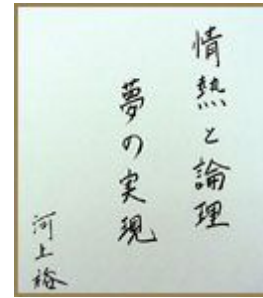 情熱と論理
夢の実現
河上裕